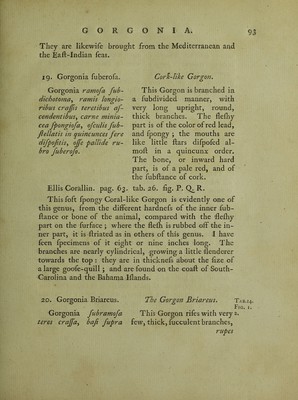 GORGONIA. 93
They are likewiſe brought from the Mediterranean and
the Eaſt-Indian ſeas.
19. Gorgonia ſuberoſa.
Gorgonia ramoſa ſub-
dichotoma, ramis longio-
ribus craſſis teretibus aſ-
cendentibus, carne minia-
cea ſpongioſa, oſculis ſub-
ſtellatis in quincunces fere
diſpoſitis, oſſe pallide ru-
bro ſuberoſo.
Cork-like Gorgon.
This Gorgon is branched in
a ſubdivided manner, with
very long upright, round,
thick branches. The fleſhy
part is of the color of red lead,
and ſpongy; the mouths are
like little ſtars diſpoſed al-
moſt in a quincunx order.
The bone, or inward hard
part, is of a pale red, and of
the ſubſtance of cork.
Ellis Corallin. pag. 63. tab. 26. fig. P. Q. R.
This ſoft ſpongy Coral-like Gorgon is evidently one of
this genus, from the different hardneſs of the inner ſub-
ſtance or bone of the animal, compared with the fleſhy
part on the ſurface; where the fleſh is rubbed off the in-
ner part, it is ſtriated as in others of this genus. I have
ſeen ſpecimens of it eight or nine inches long. The
branches are nearly cylindrical, growing a little ſlenderer
towards the top: they are in thickneſs about the ſize of
a large gooſe-quill; and are found on the coaſt of South-
Carolina and the Bahama Iſlands.
20. Gorgonia Briareus.
Gorgonia ſubramoſa
teres craſſa, baſi ſupra
The Gorgon Briareus. TAB.14.
FIG. 1.
This Gorgon riſes with very 2.
few, thick, ſucculent branches,
rupes